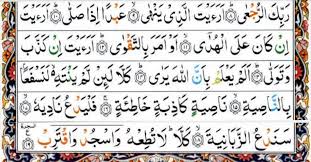 رَبِّكَ الرُّجْعٰى ۞ اَرَءَيْتَ الَّذِىْ يَنْهٰى ۞ عَبْدًا اِذَا صَلّٰى ۞ اَرَءَيْتَ
اِنْ كَانَ عَلَى الْهُدٰٓى ۞ اَوْ اَمَرَ بِالتَّقْوٰى ۞ اَرَءَيْتَ اِنْ كَذَّبَ
وَتَوَلّٰى ۞ اَلَمْ يَعْلَمْ بِاَنَّ اللّٰهَ يَرٰى ۞ كَلَّا لَئِنْ لَّمْ يَنْتَهِ ۞ لَنَسْفَعًۢا
بِالنَّاصِيَةِ ۞ نَاصِيَةٍ كَاذِبَةٍ خَاطِئَةٍ ۞ فَلْيَدْعُ نَادِيَهٗ ۞
سَنَدْعُ الزَّبَانِيَةَ ۞ كَلَّا لَا تُطِعْهُ وَاسْجُدْ وَاقْتَرِبْ ۞